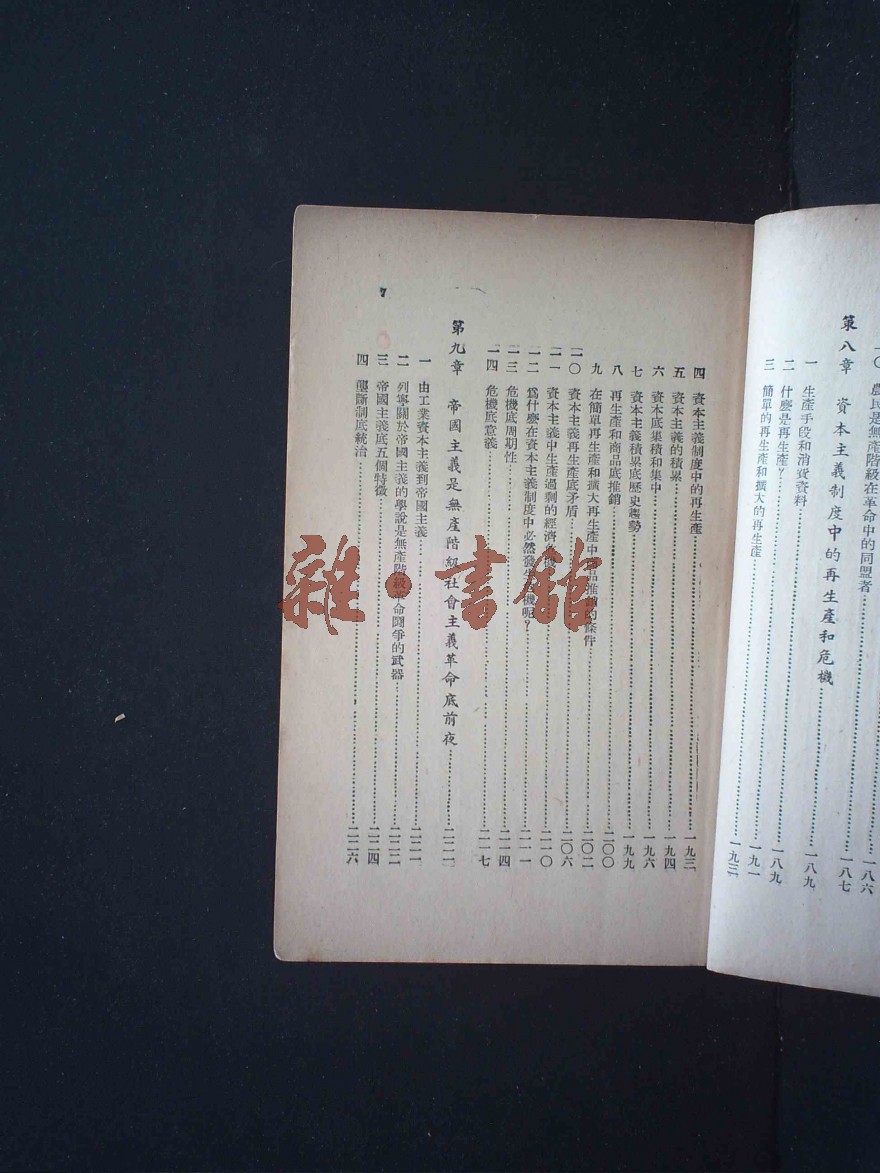 一〇 農民是無產階級在革命中的同盟者……一八六
第八章 資本主義制度中的再生產和危機……一八七
一 生產手段和消費資料……一八九
二 什麼是再生產?……一八九
三 簡單的再生產和擴大的再生產……一九一
四 資本主義制度中的再生產……一九三
五 資本主義的積累……一九四
六 資本底集積和集中……一九六
七 資本主義積累底歷史趨勢……一九九
八 再生產和商品底推銷……二〇〇
九 在簡單再生產和擴大再生產中商品推銷的條件……二〇二
一〇 資本主義再生產底矛盾……二〇六
一一 資本主義中生產過剩的經濟危機……二一〇
一二 爲什麼在資本主義制度中必然發生危機呢?……二一一
一三 危機底周期性……二一四
一四 危機底意義……二一七
第九章 帝國主義是無產階級社會主義革命底前夜……二二一
一 由工業資本主義到帝國主義……二二一
二 列寧關於帝國主義的學說是無產階級革命鬪爭的武器……二二二
三 帝國主義底五個特徵……二二四
四 壟斷制底統治……二二六
7
雜·書館